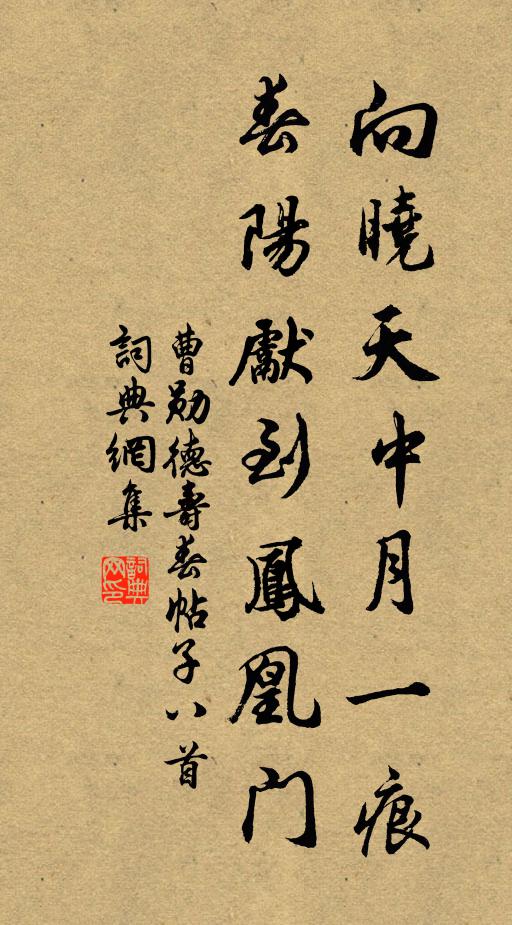 向曉天中月一痕
春陽獻到鳳凰門
曹勛德壽春帖子八首
詞典網集
詞典網印